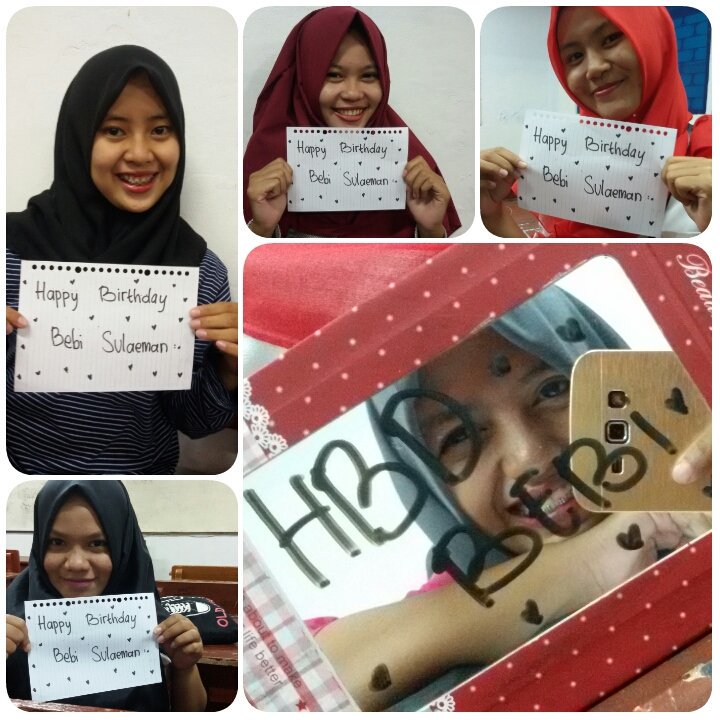 Happy Birthday
Bebi Sulaeman
Happy Birthday
Bebi Sulaeman
Happy Birthday
Bebi Sulaeman
Happy Birthday
Bebi Sulaeman
HBD
BEBI
about to make
life better